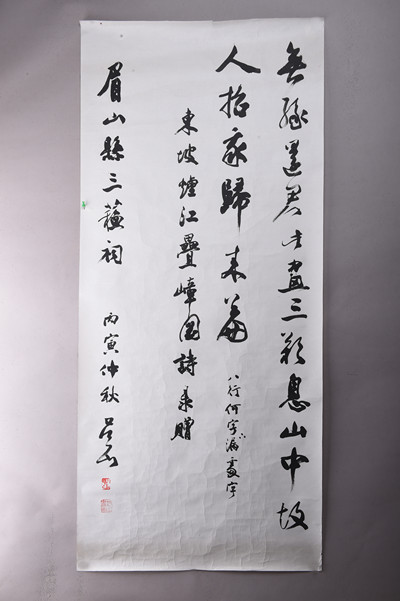 無緣還君此畫三歎息山中故
人招我歸來篇
八行何字漏字
東坡煙江疊嶂圖詩贈
眉山縣三蘇祠
丙寅仲秋